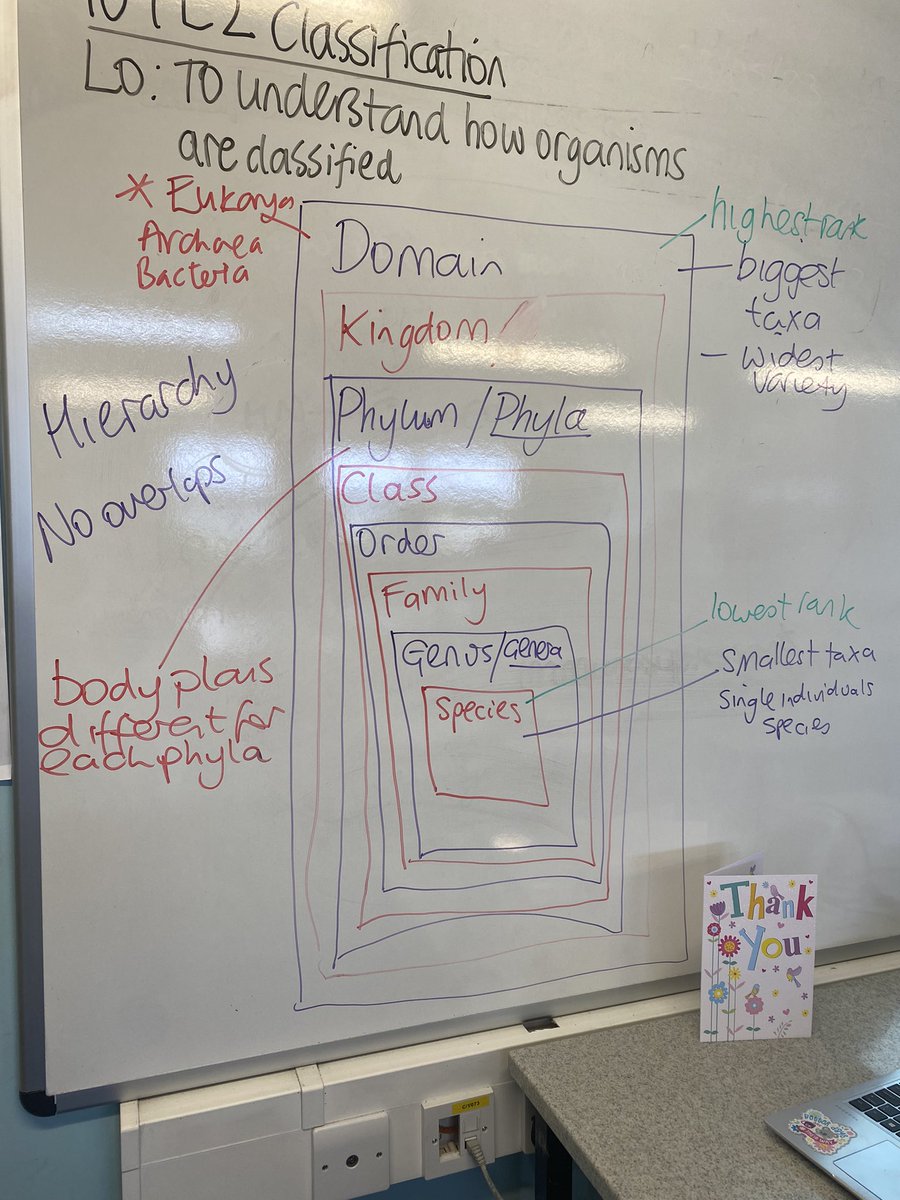 Classification
LO: To understand how organisms
are classified
* Eukarya
Archaea
Bacteria
Domain
highest rank
– biggest
taxa
– widest
variety
Kingdom/
Hierarchy
Phylum/Phyla
No overlaps
Class
Order
Family
Genus/Genera
Species
lowest rank
smallest taxa
single individuals
species
body plans
different for
each phyla
Thank
You